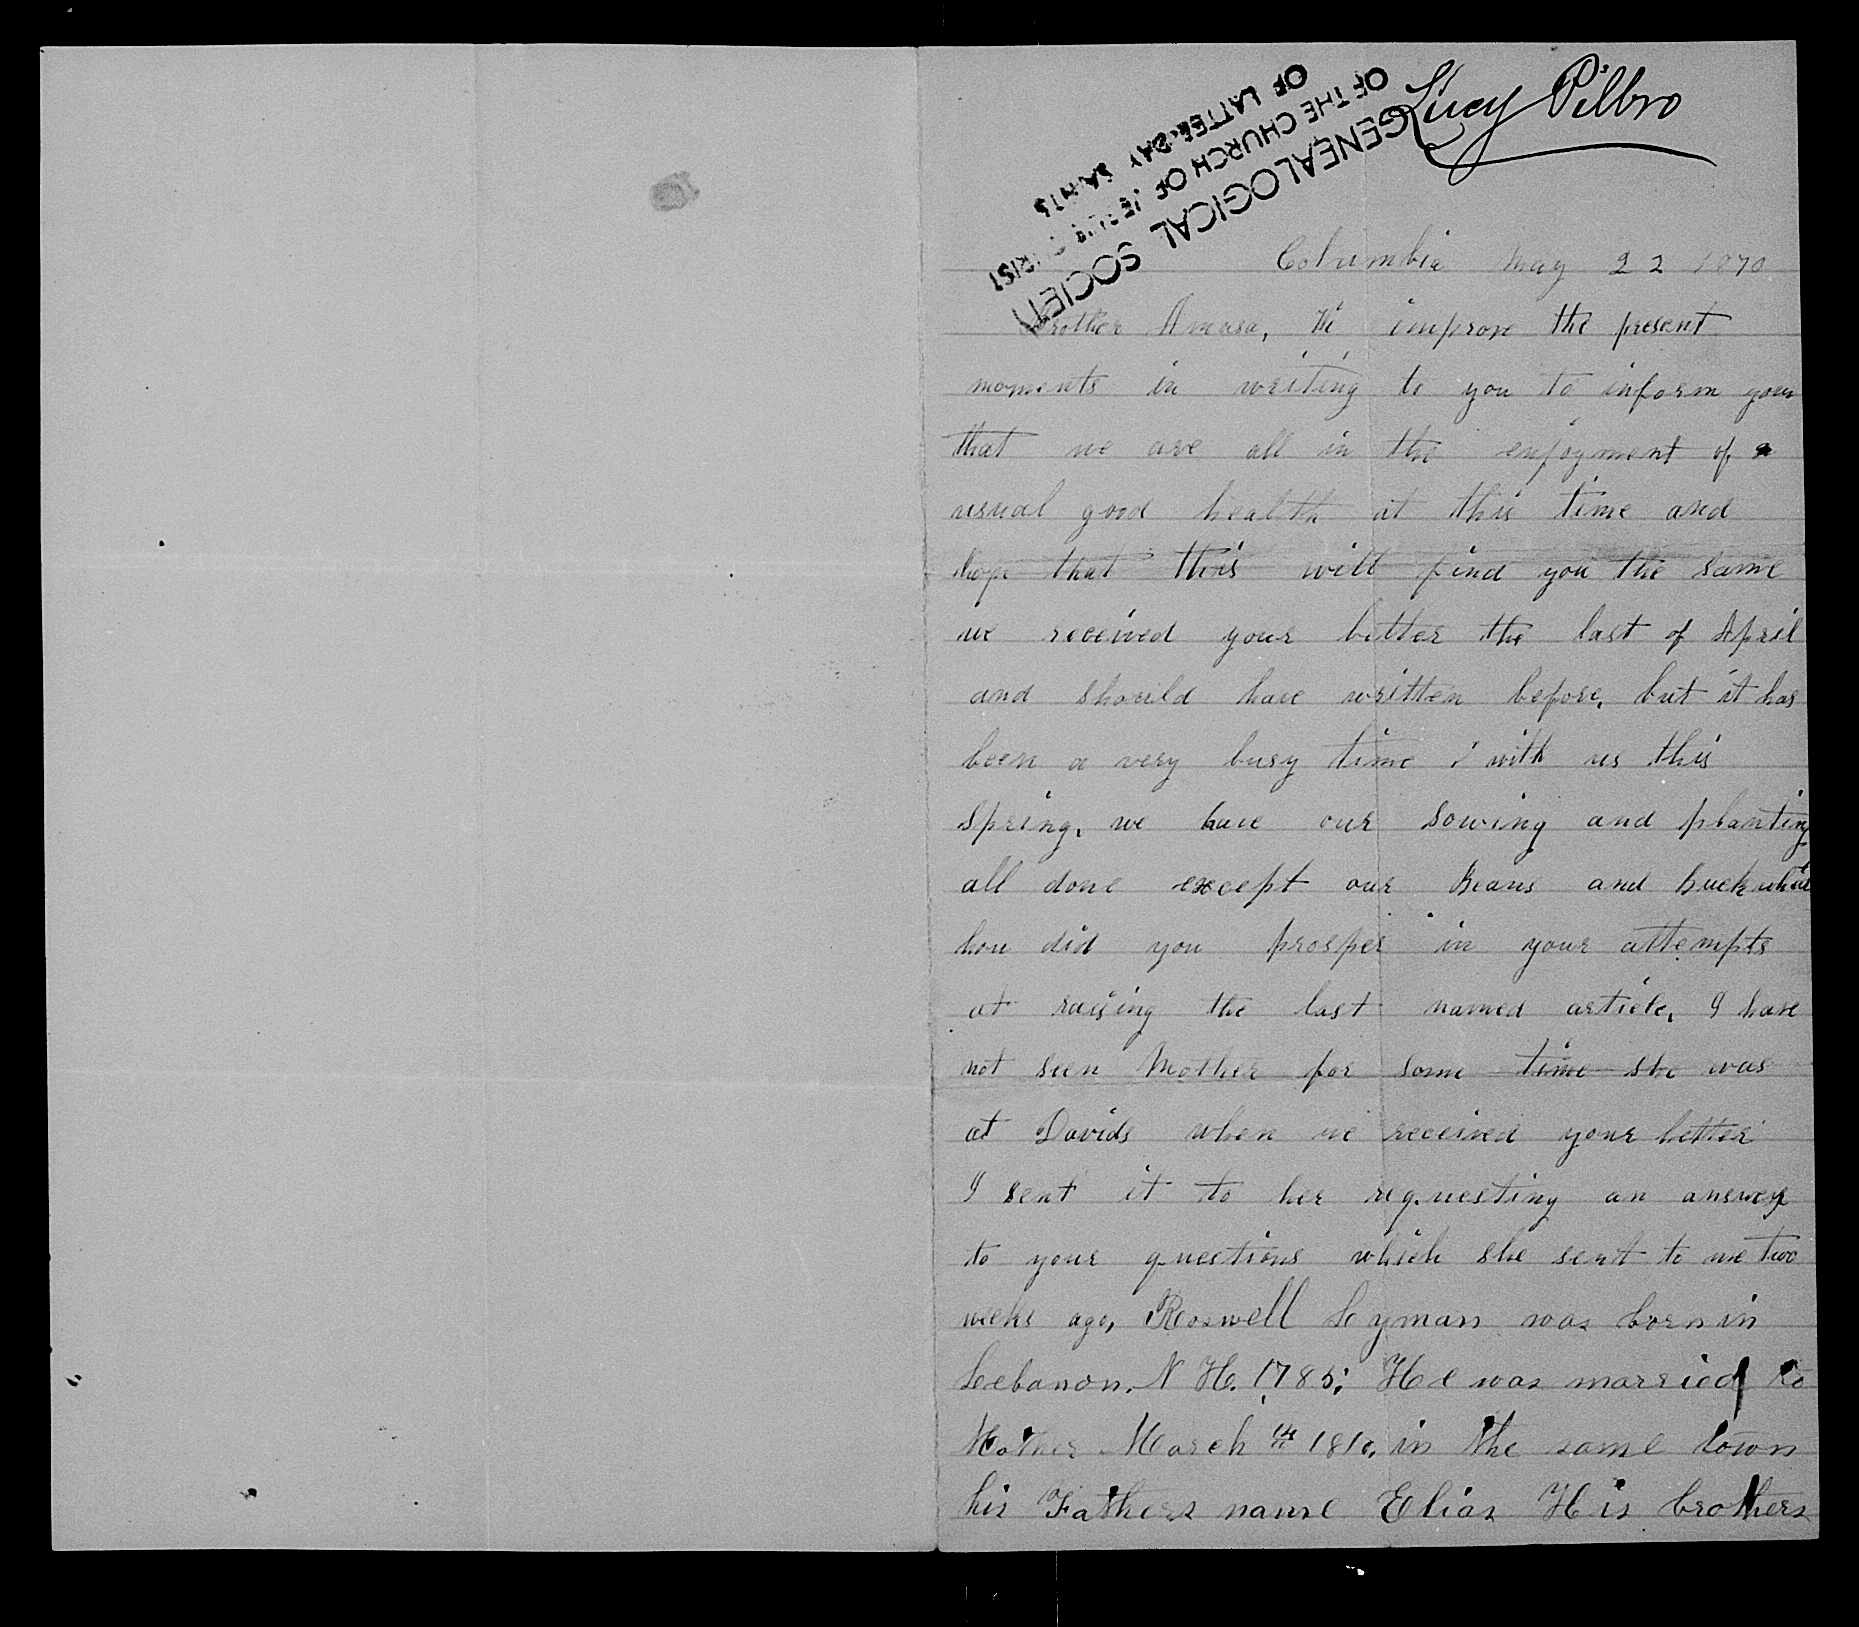 Lucy Pilbro
GENEALOGICAL SOCIETY
OF THE CHURCH OF JESUS CHRIST
OF LATTER-DAY SAINTS
Columbia May 22 1870
Brother Amasa, We improve the present
moments in writing to you to inform you
that we are all in the enjoyment of a
usual good health at this time and
hope that this will find you the same
we received your letter the last of April
and should have written before, but it has
been a very busy time with us this
spring, we have our sowing and planting
all done except our Beans and buckwheat
how did you prosper in your attempts
at raising the last named article, I have
not seen Mother for some time she was
at Davids when we received your letter
I sent it to her requesting an answer
to your questions which she sent to me two
weeks ago, Roswell Lyman was born in
Lebanon, N H. 1785; He was married to
Mother March 14 1810, in the same town
his Fathers name Elias His brothers